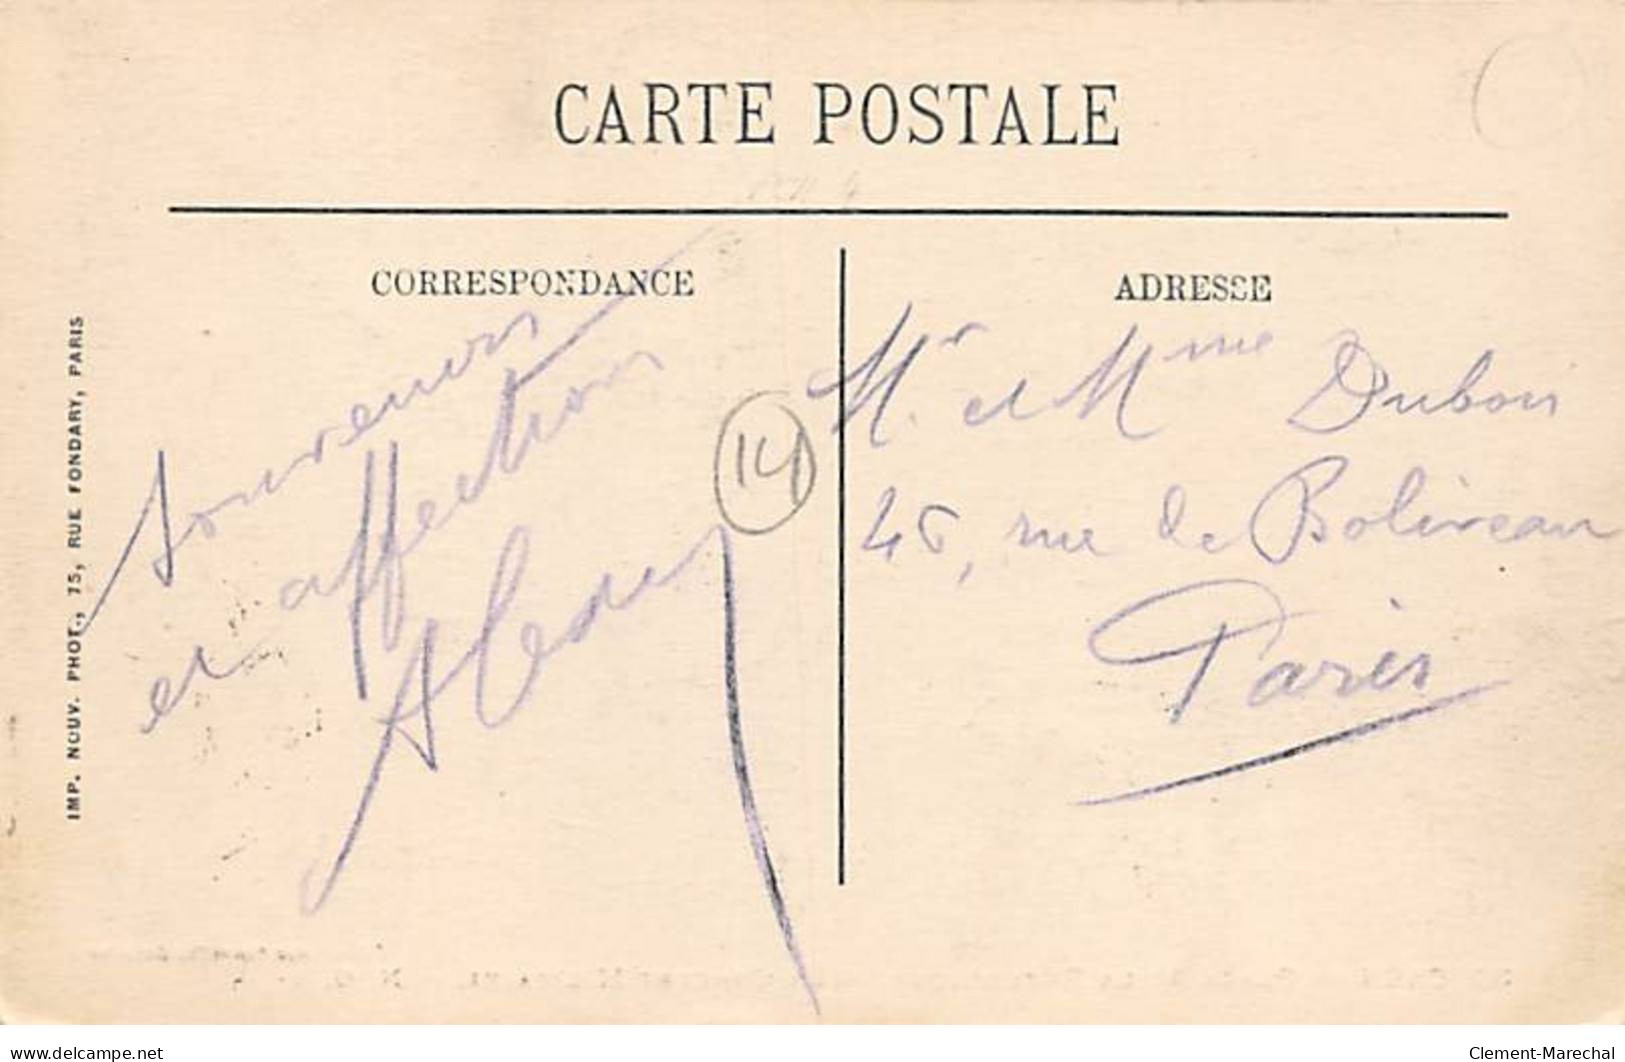 CARTE POSTALE
CORRESPONDANCE
Souvenirs
et affections
ADRESSE
Mr et Mme Dubois
45, rue de Poliveau
Paris
14
IMP. NOUV. PHOT., 75, RUE FONDARY, PARIS
www.delcampe.net
Clement-Marechal